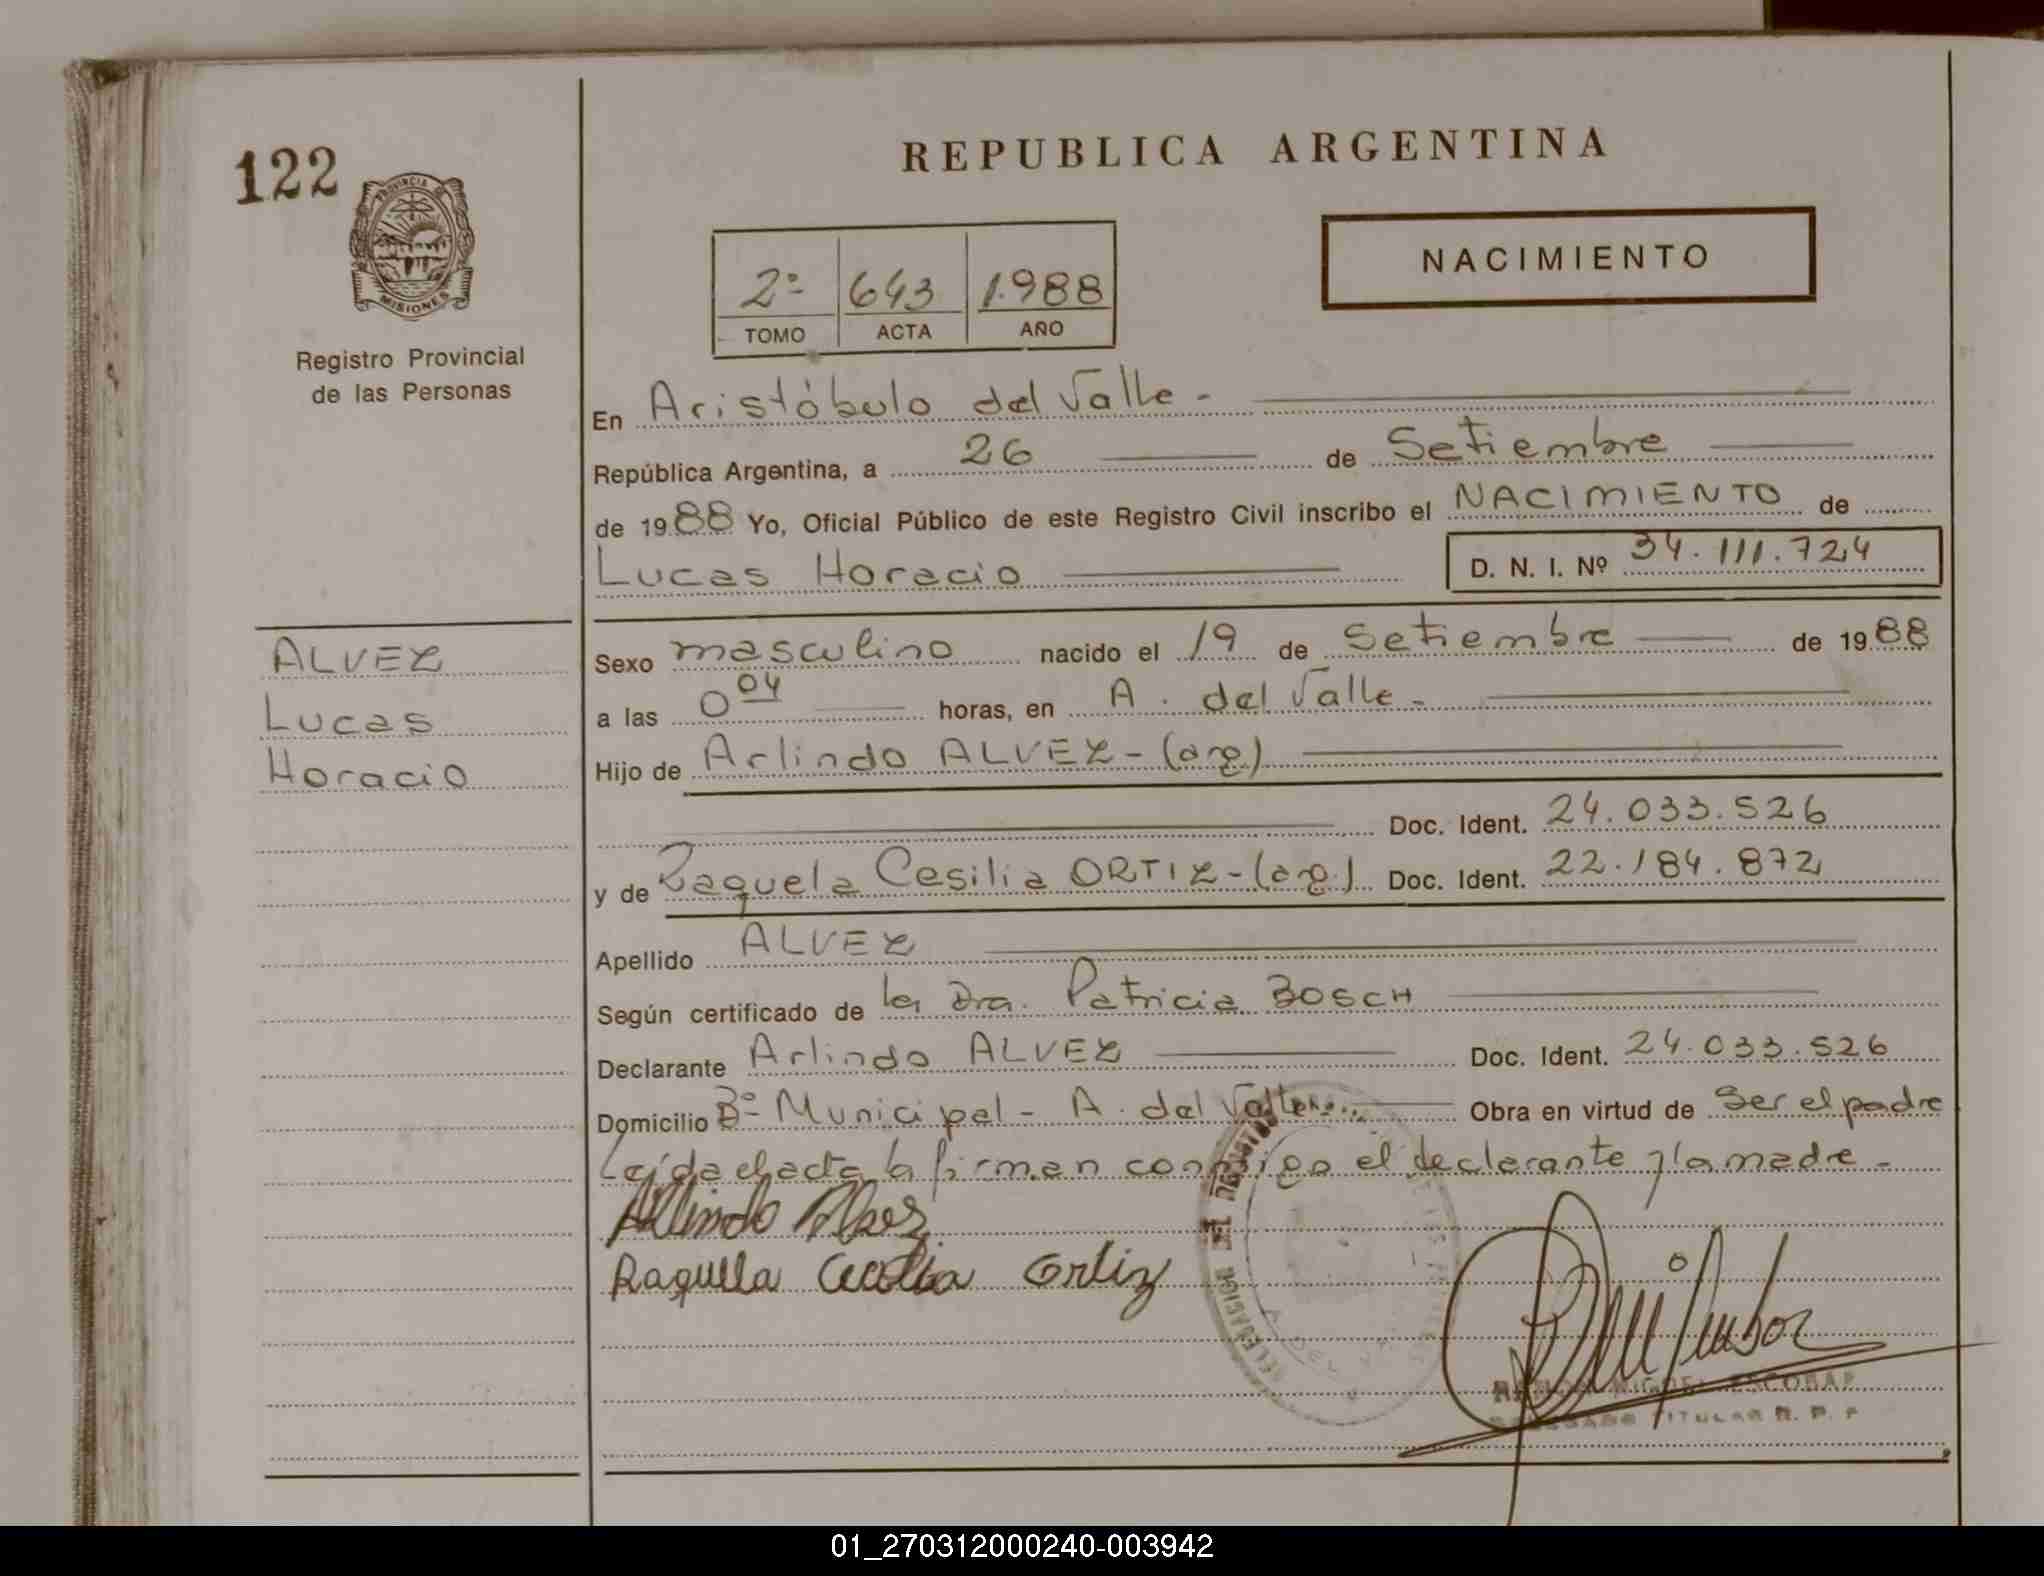 122
REPUBLICA ARGENTINA
PROVINCIA DE
MISIONES
Registro Provincial
de las Personas
2º 643 1.988
TOMO ACTA AÑO
NACIMIENTO
En Aristóbulo del Valle -
República Argentina, a 26 de Setiembre
de 1988 Yo, Oficial Público de este Registro Civil inscribo el NACIMIENTO de
Lucas Horacio D. N. I. Nº 34.111.724
ALVEZ
Lucas
Horacio
Sexo masculino nacido el 19 de Setiembre de 1988
a las 0 04 horas, en A. del Valle -
Hijo de Arlindo ALVEZ - (arg)
Doc. Ident. 24.033.526
y de Raquela Cesilia ORTIZ - (arg.) Doc. Ident. 22.184.872
Apellido ALVEZ
Según certificado de la Dra. Patricia BOSCH
Declarante Arlindo ALVEZ Doc. Ident. 24.033.526
Domicilio Bº Municipal - A. del Valle Obra en virtud de Ser el padre
Leída el acta la firman conmigo el declarante y la madre -
Arlindo Alvez
Raquela Cecilia Ortiz
DELEGACION
A. DEL VALLE
RAMON MIGUEL ESCOBAR
DELEGADO TITULAR R. P. P
01_270312000240-003942